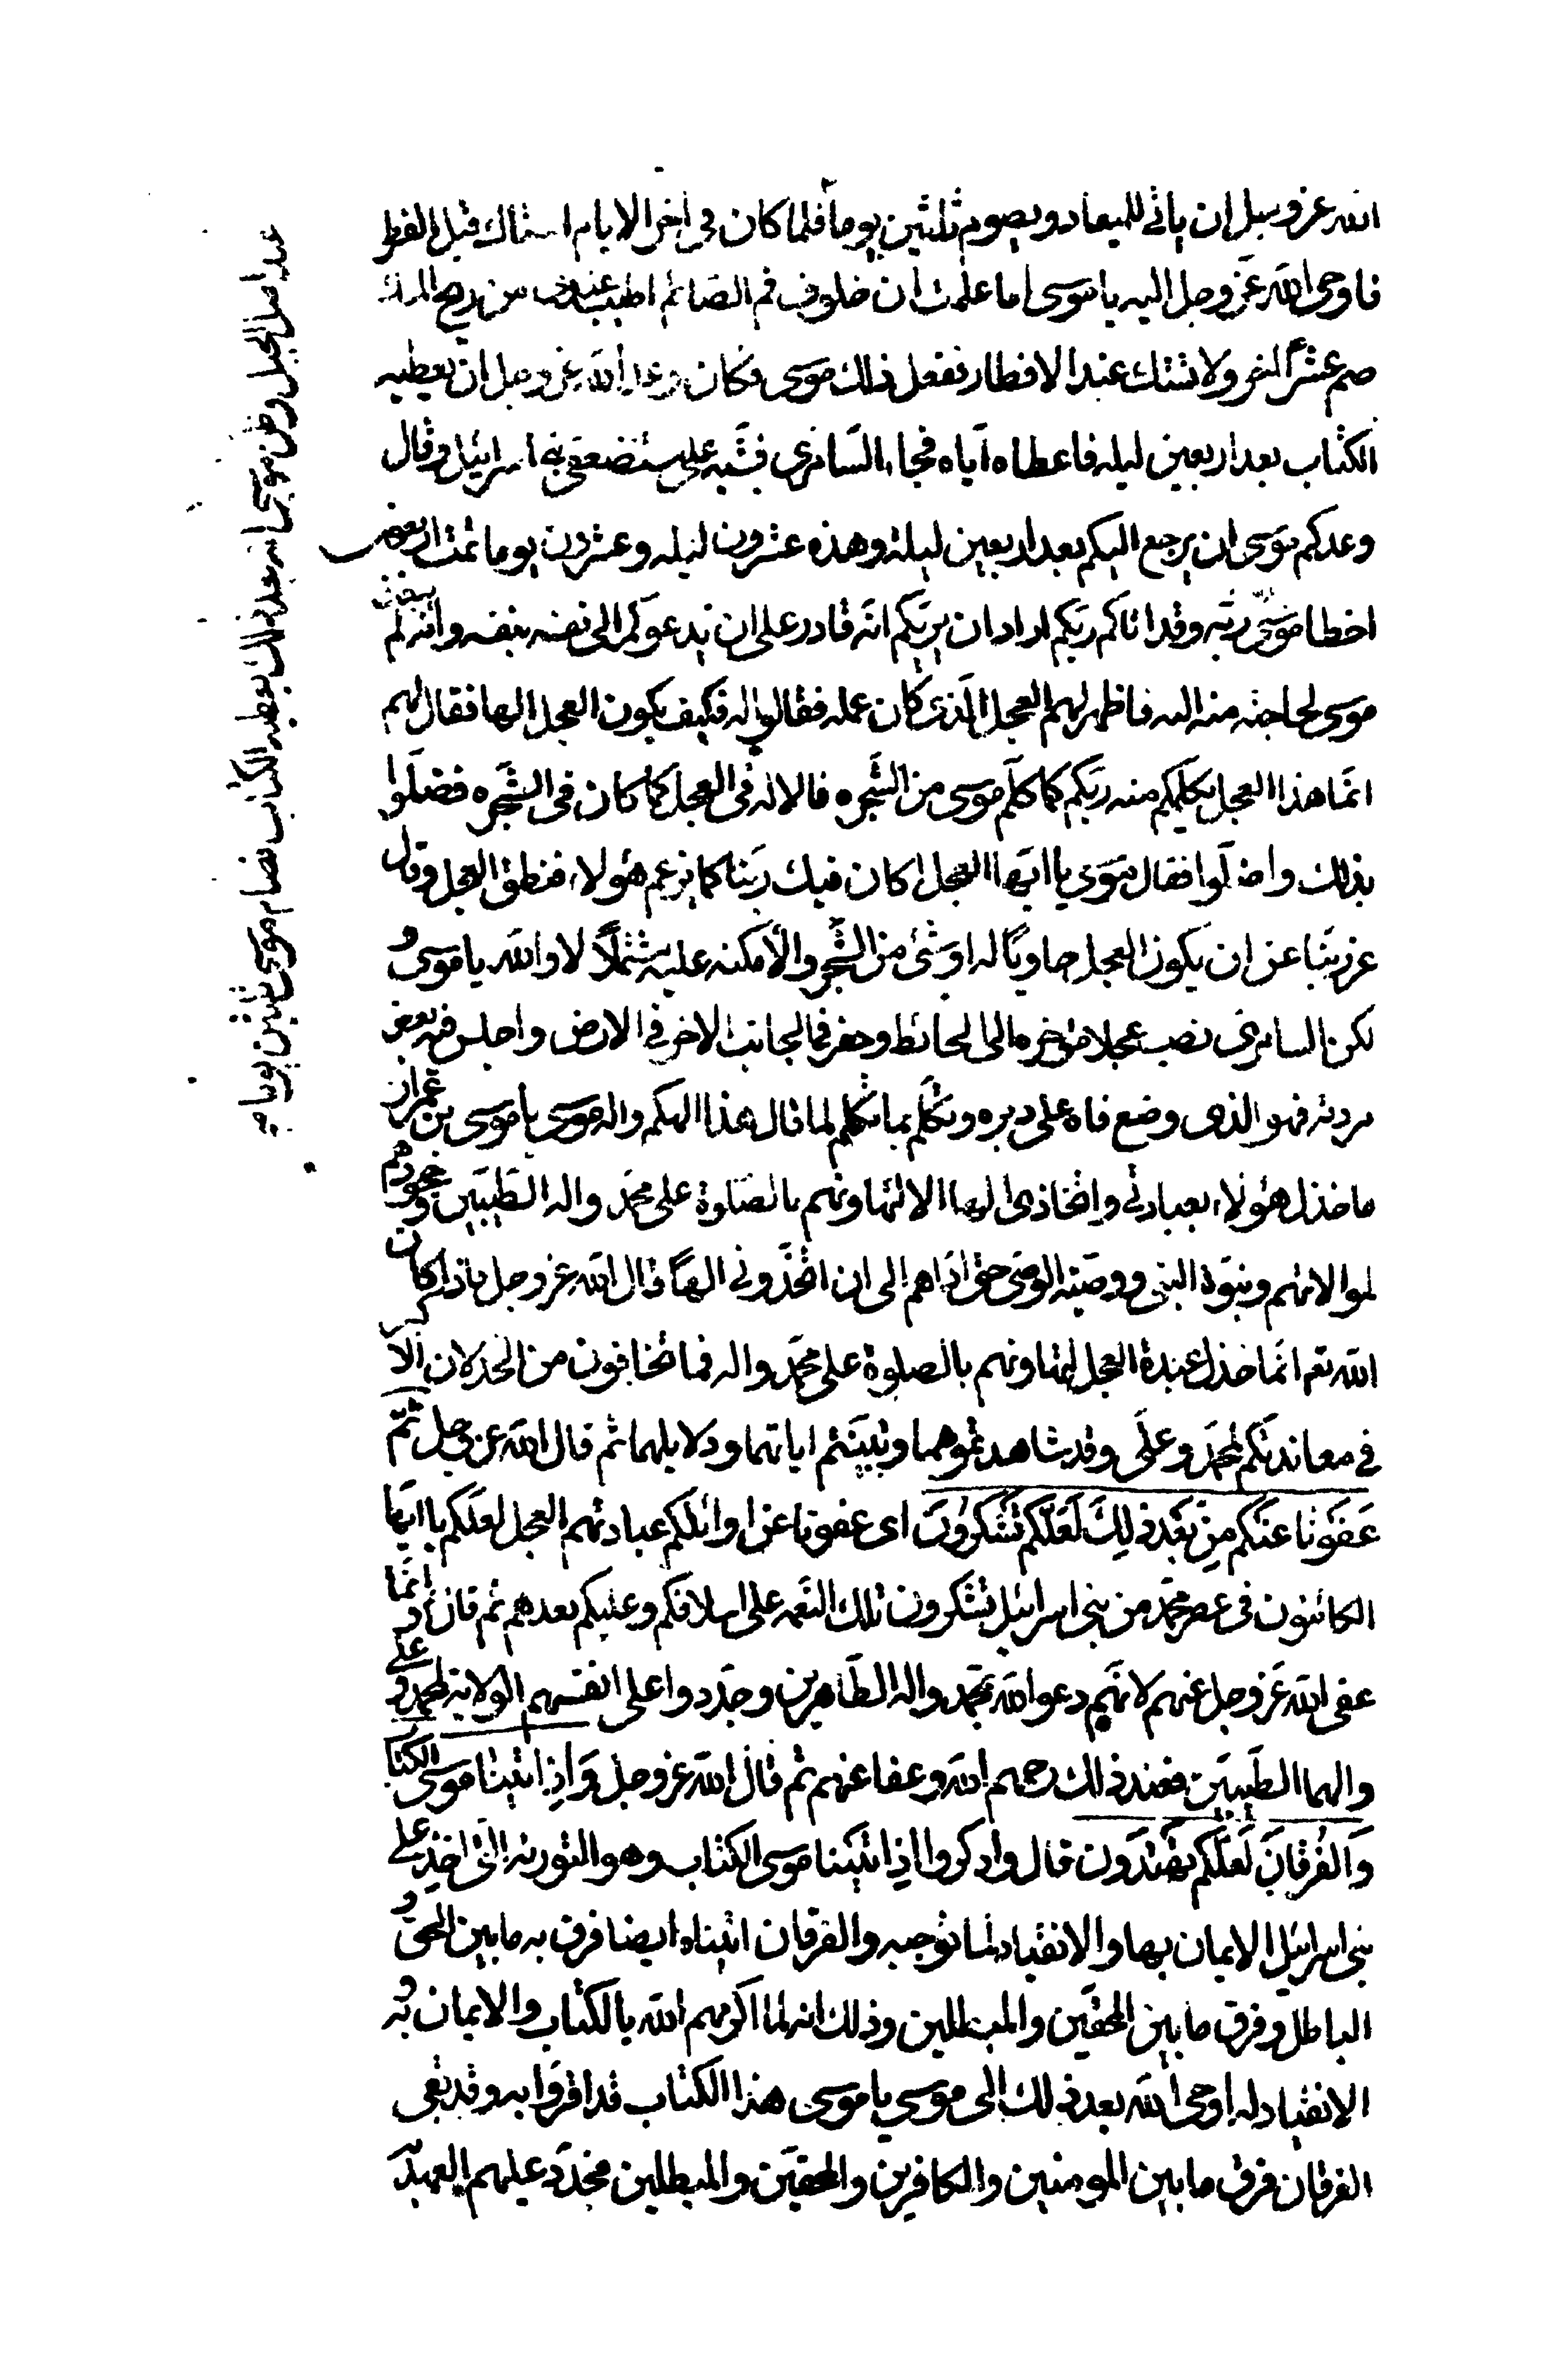 الله عز وجل ان ياتي للميعاد ويصوم ثلثين يوما فلما كان في اخر الايام استاك قبل الفطر
فاوحى الله عز وجل اليه يا موسى اما علمت ان خلوف فم الصائم اطيب عندى من ريح المسك
صم عشرا اخر ولا تستك عند الافطار ففعل ذلك موسى وكان وعد الله عز وجل ان يعطيه
الكتاب بعد اربعين ليله فاعطاه اياه فجاء السامرى فشبه على مستضعفى بنى اسرائيل وقال
وعدكم موسى ان يرجع اليكم بعد اربعين ليلة وهذه عشرون ليله وعشرون يوما تمت اربعون
اخطا موسى ربه وقد اتاكم ربكم اراد ان يريكم انه قادر على ان يدعوكم الى نفسه بنفسه وانه لم يبعث
موسى لحاجته منه اليه فاظهر لهم العجل الذى كان عمله فقالوا له فكيف يكون العجل الها فقال لهم
انما هذا العجل يكلمكم منه ربكم كما كلم موسى من الشجره فالاله فى العجل كما كان فى الشجره فضلوا
بذلك واضلوا فقال موسى يا ايها العجل اكان فيك ربنا كما يزعم هؤلاء فنطق العجل وقال
عز ربنا عن ان يكون العجل حاويا له او شئ من الشجر والامكنه عليه مشتملا لا والله يا موسى و
لكن السامرى نصب عجلا مؤخره الى الحائط وحفر فى الجانب الاخر فى الارض واجلس فيه بعض
مردته فهو الذى وضع فاه على دبره وتكلم بما تكلم لما قال هذا الهكم واله موسى يا موسى بن عمران
ما خذل هؤلاء بعبادتى واتخاذى الها الا لتهاونهم بالصلوة على محمد واله الطيبين وجحودهم
لموالاتهم ونبوة النبى ووصية الوصى حتى اداهم الى ان اتخذونى الها قال الله عز وجل فاذا كان
الله تعم انما خذل عبدة العجل لتهاونهم بالصلوة على محمد واله فما تخافون من الخذلان الاكبر
فى معاندتكم لمحمد وعلى وقد شاهدتموهما وتبينتم اياتهما ودلايلهما ثم قال الله عز وجل ثم
عَفَوْنا عنكم مِن بَعْد ذلِكَ لَعَلَّكُم تَشْكُرُونَ اى عفونا عن اوائلكم عبادتهم العجل لعلكم يا ايها
الكائنون فى عصر محمد من بنى اسرائيل تشكرون تلك النعمه على اسلافكم وعليكم بعدهم ثم قال وانما
عفى الله عز وجل عنهم لانهم دعوا الله بمحمد واله الطاهرين وجددوا على انفسهم الولاية لمحمد وعلى
والهما الطيبين فعند ذلك رحمهم الله وعفا عنهم ثم قال الله عز وجل وَاذ اتينا موسى الكتاب
وَالفُرقانَ لَعَلَّكُم تهتَدون قال واذكروا اذ اتينا موسى الكتاب وهو التورية الذى اخذ على
بنى اسرائيل الايمان بها والانقياد لما توجبه والفرقان اتيناه ايضا فرق به ما بين الحق و
الباطل وفرق ما بين المحقين والمبطلين وذلك انه لما اكرمهم الله بالكتاب والايمان به و
الانقياد له اوحى الله بعد ذلك الى موسى يا موسى هذا الكتاب قد اقروا به وقد بقى
الفرقان فرق ما بين المومنين والكافرين والمحقين والمبطلين فجدد عليهم العهد به
عند اصل الجبل وظن موسى انه بعد ذلك يعطيه الكتاب فصام موسى ثلثين يوما